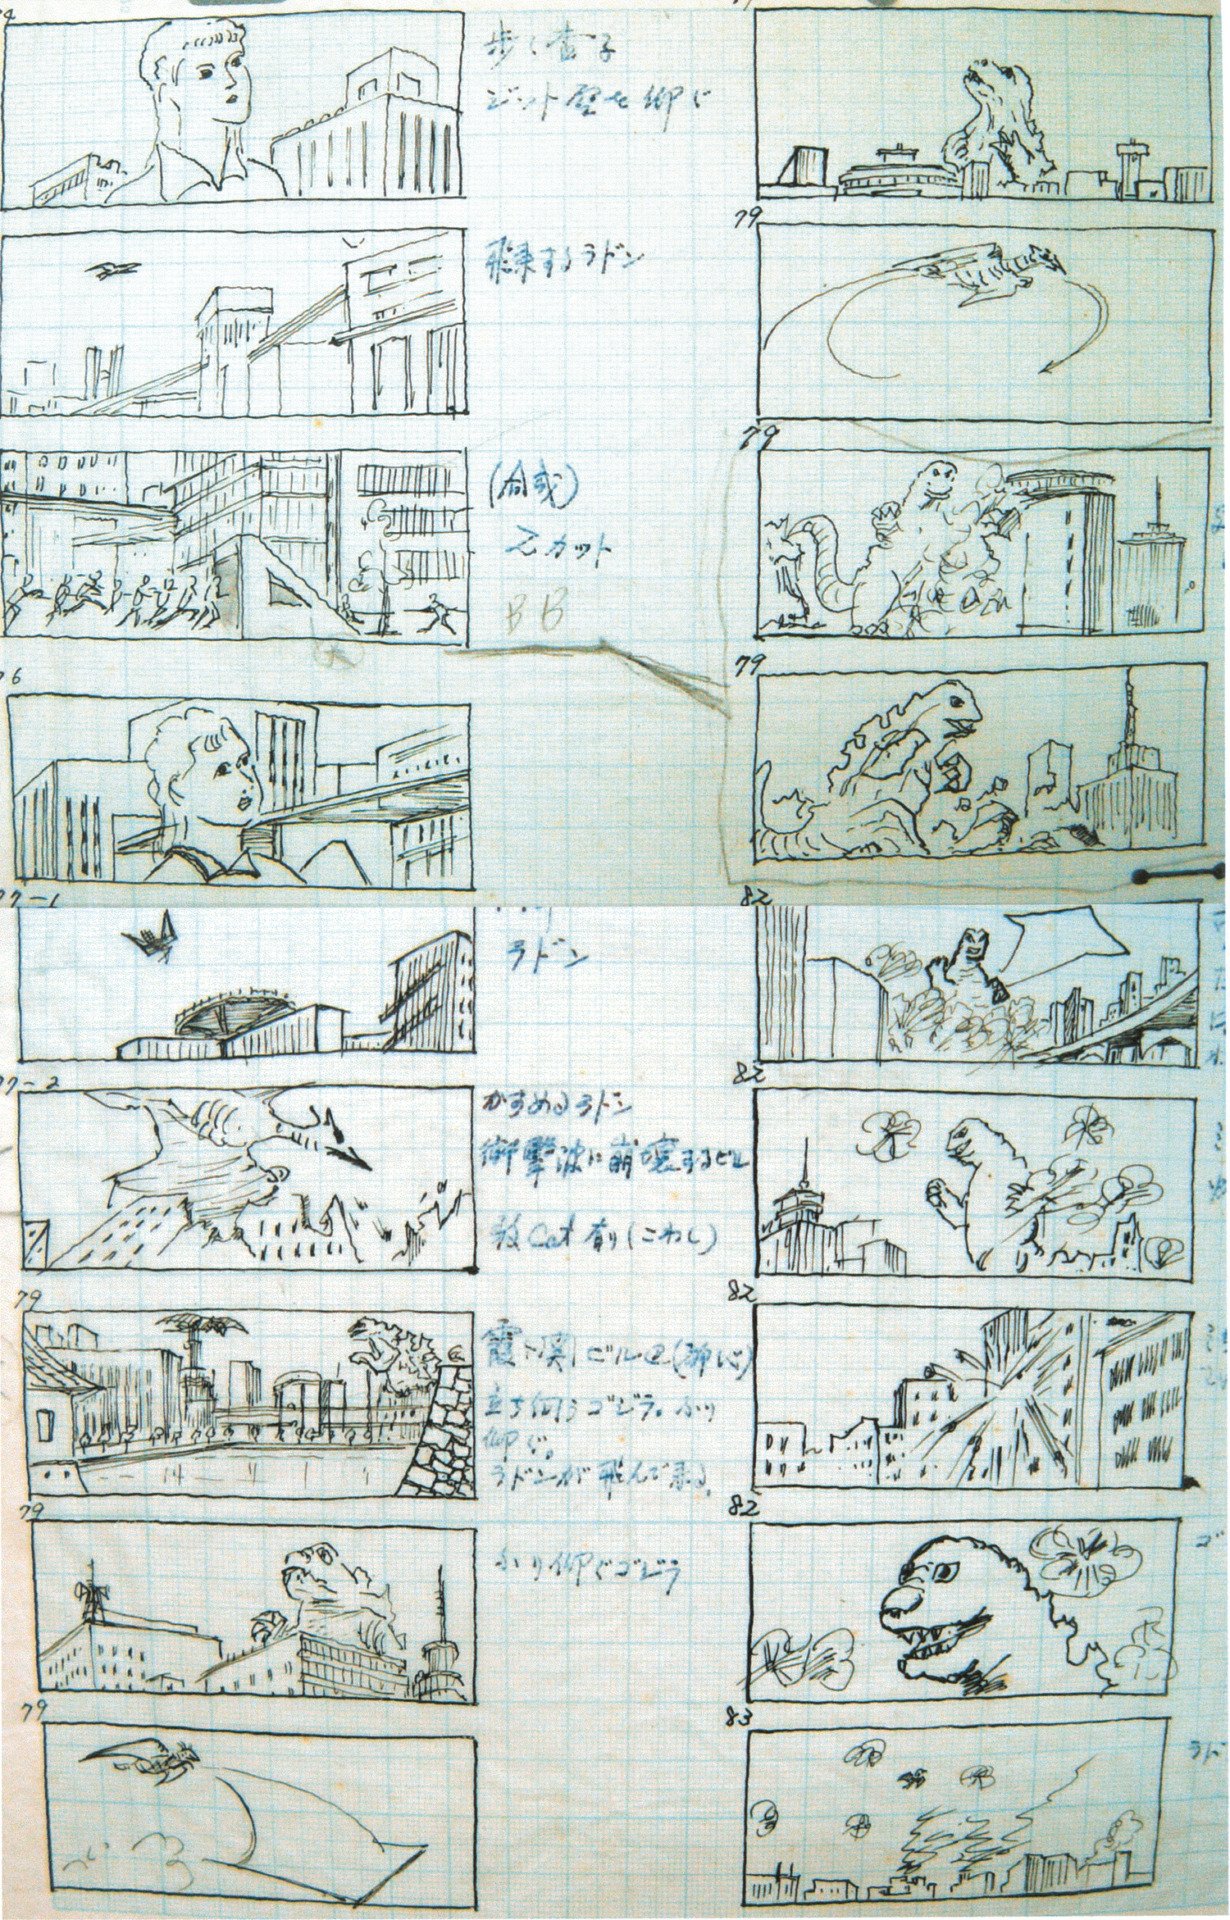 歩く杏子
飛来するラドン
(合成)
2カット
BB
76
77-1
ラドン
77-2
かすめるラドン
衝撃波に崩壊するビル
数Cut有り(こわし)
79
霞ヶ関ビル
立ち向うゴジラ。ふり
仰ぐ。
ラドンが飛んで来る。
79
ふり仰ぐゴジラ
79
79
79
79
82
82
82
82
83